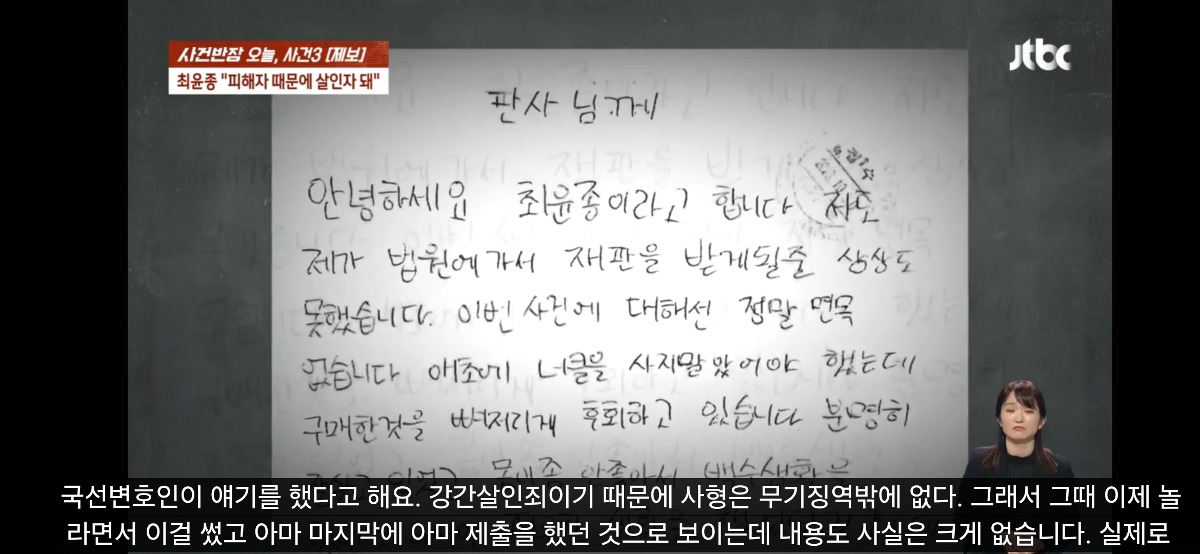 사건반장 오늘, 사건3 [제보]
최윤종 "피해자 때문에 살인자 돼"
jtbc
판사 님께
안녕하세요 최윤종이라고 합니다 저도
제가 법원에가서 재판을 받게될줄 상상도
못했습니다. 이번 사건에 대해선 정말 면목
없습니다 애초에 너클을 사지말았어야 했는데
구매한것을 뼈저리게 후회하고 있습니다 분명히
국선변호인이 얘기를 했다고 해요. 강간살인죄이기 때문에 사형은 무기징역밖에 없다. 그래서 그때 이제 놀
라면서 이걸 썼고 아마 마지막에 아마 제출을 했던 것으로 보이는데 내용도 사실은 크게 없습니다. 실제로